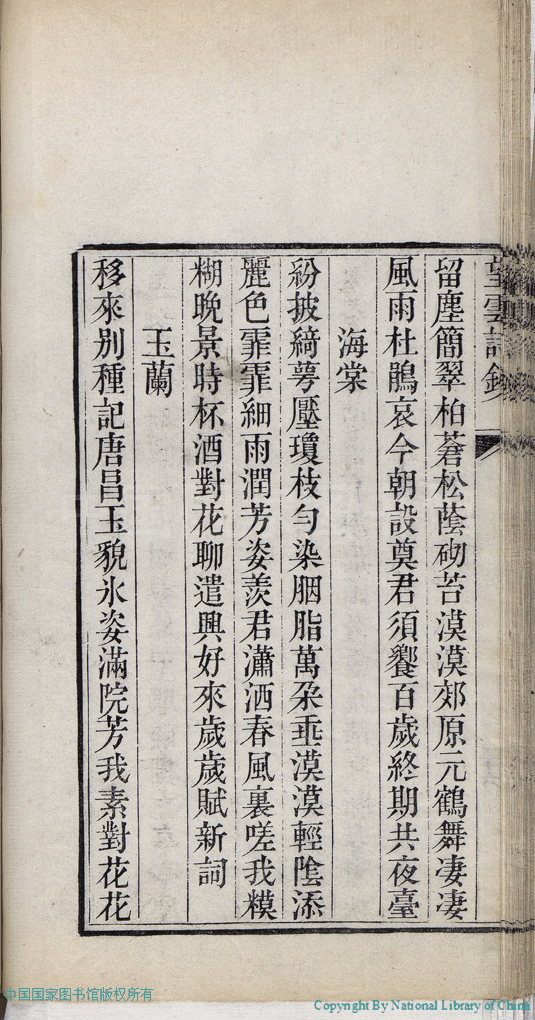 望雲詩鈔
留塵簡翠柏蒼松蔭砌苔漠漠郊原元鶴舞凄凄
風雨杜鵑哀今朝設奠君須饗百歲終期共夜臺
海棠
紛披綺萼壓瓊枝勻染胭脂萬朶垂漠漠輕陰添
麗色霏霏細雨潤芳姿羨君瀟洒春風裏嗟我糢
糊晚景時杯酒對花聊遣興好來歲歲賦新詞
玉蘭
移來别種記唐昌玉貌氷姿滿院芳我素對花花
中国国家图书馆版权所有
Copyright By National Library of China